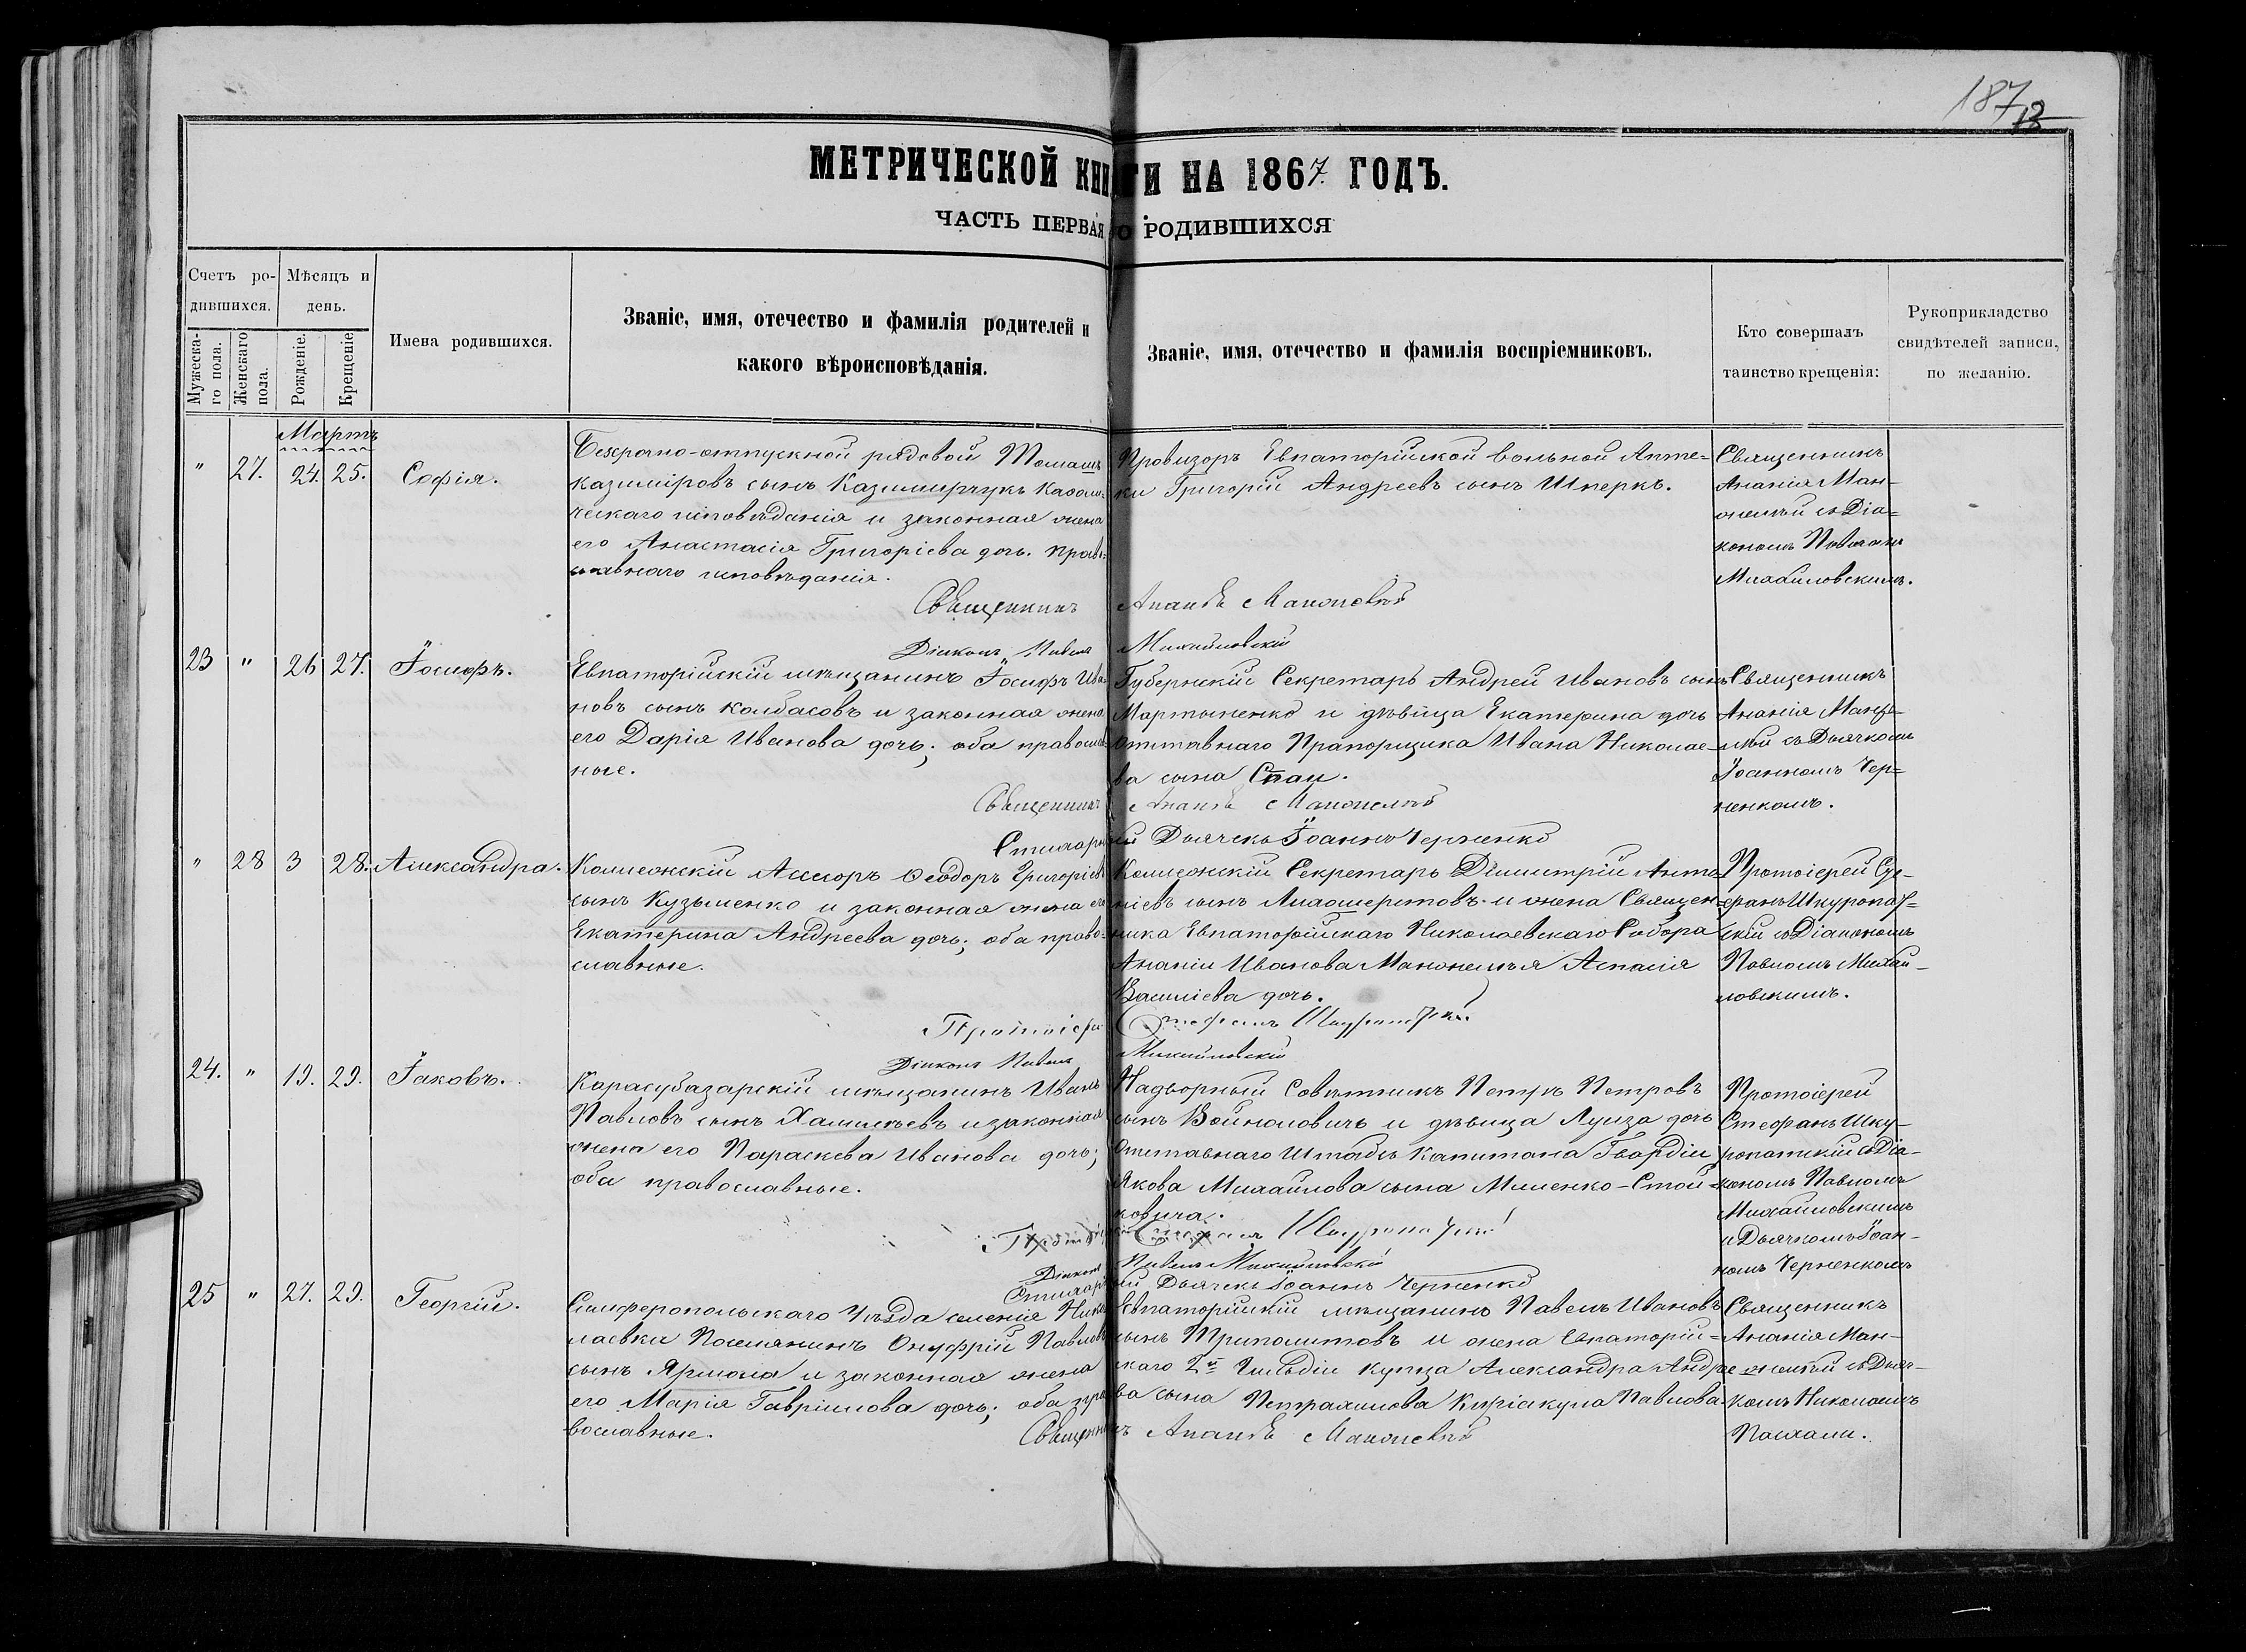 187
13
МЕТРИЧЕСКОЙ КНИГИ НА 1867 ГОДЪ.
ЧАСТЬ ПЕРВАЯ О РОДИВШИХСЯ
Счетъ ро-
дившихся.
Мужеска-
го пола.
Женскаго
пола.
Мѣсяцъ и
день.
Рожденіе.
Крещеніе.
Имена родившихся.
Званіе, имя, отечество и фамилія родителей и
какого вѣроисповѣданія.
Званіе, имя, отечество и фамилія воспріемниковъ.
Кто совершалъ
таинство крещенія:
Рукоприкладство
свидѣтелей записи,
по желанію.
Мартъ
" 27. 24. 25. Софія.
Безсрочно-отпускной рядовой Томашъ
Казиміровъ сынъ Казимирчукъ Католи-
ческаго исповѣданія и законная жена
его Анастасія Григоріева дочь. Право-
славнаго исповѣданія.
Провизоръ Евпаторійской вольной Апте-
ки Григорій Андреевъ сынъ Шперкъ.
Священникъ
Ананія Ман-
желѣй съ Діа-
кономъ Павломъ
Михайловскимъ.
Священникъ Ананія
Діаконъ Павелъ Михайловскій
23 " 26 27. Іосифъ.
Евпаторійскій мѣщанинъ Іосифъ Ива-
новъ сынъ Колбасовъ и законная жена
его Дарія Иванова дочь; оба православ-
ные.
Губернскій Секретарь Андрей Ивановъ сынъ
Мартыненко и дѣвица Екатерина дочь
Отставнаго Прапорщика Ивана Николае-
ва сына Спаи.
Священникъ
Ананія Манже-
лѣй съ Дьячкомъ
Іоанномъ Чер-
ненкомъ.
Священникъ Ананія
Стихарный Дьячекъ Іоаннъ Черненко
" 28 3 28. Александра.
Коллежскій Ассесоръ Ѳеодоръ Григоріевъ
сынъ Кузьменко и законная жена его
Екатерина Андреева дочь; оба право-
славные.
Коллежскій Секретарь Димитрій Анто-
ніевъ сынъ и жена Священ-
ника Евпаторійскаго Николаевскаго Собора
Ананіи Иванова Манжелѣя Аспасія
Василіева дочь.
Протоіерей Сте-
фанъ Шкуропат-
скій съ Діакономъ
Павломъ Михай-
ловскимъ.
Протоіерей Стефанъ Шкуропатскій
Діаконъ Павелъ Михайловскій
24. " 19. 29. Іаковъ.
Карасубазарскій мѣщанинъ Иванъ
Павловъ сынъ и законная
жена его Параскева Иванова дочь;
оба православные.
Надворный Совѣтникъ Петръ Петровъ
сынъ Войновичъ и дѣвица Луиза дочь
Отставнаго Штабсъ Капитана Гвардіи
Якова Михайлова сына Миленко-Стой-
ковича.
Протоіерей
Стефанъ Шку-
ропатскій съ Діа-
кономъ Павломъ
Михайловскимъ
и Дьячкомъ Іоан-
номъ Черненкомъ
Протоіерей Стефанъ Шкуропатскій
Діаконъ Павелъ Михайловскій
Стихарный Дьячекъ Іоаннъ Черненко
25 " 27. 29. Георгій.
Симферопольскаго Уѣзда селенія Нико-
лаевки Поселянинъ Онуфрій Павловъ
сынъ Ярмола и законная жена
его Марія Гавріилова дочь; оба пра-
вославные.
Евпаторійскій мѣщанинъ Павелъ Ивановъ
сынъ Триполитовъ и жена Евпаторій-
скаго 2й Гильдіи купца Александра Андрее-
ва сына Киріакула Павлова.
Священникъ
Ананія Ман-
желѣй съ Дьяч-
комъ Николаемъ
Священникъ Ананія